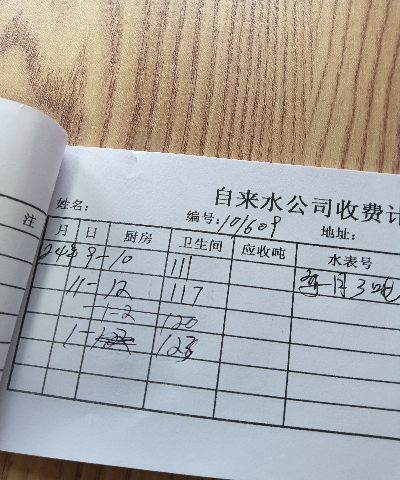 自来水公司收费计
姓名: 编号:101609 地址:
注
月 日 厨房 卫生间 应收吨 水表号
24年9-10 111 每一月3吨
11-12 117
1-2 120
1- 123